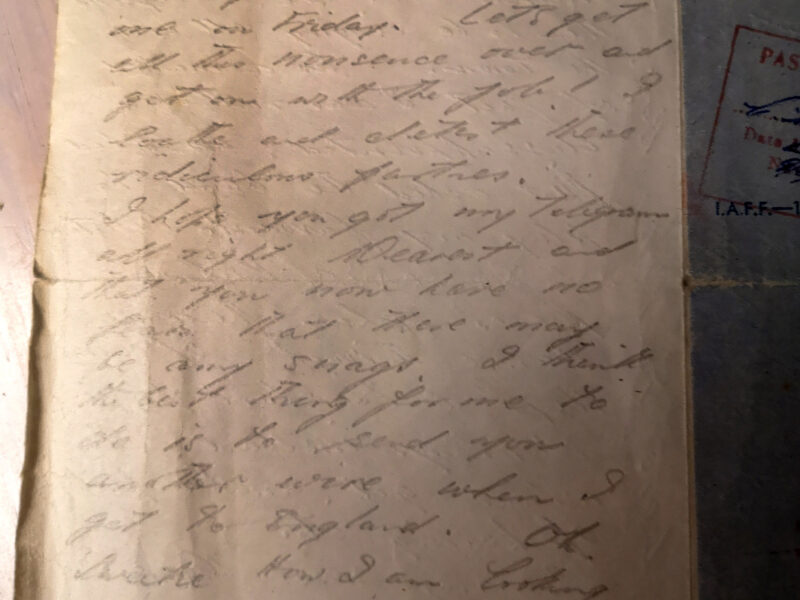 one on Friday. Let's get
all this nonsense over and
get on with the job! I
loathe and detest these
ridiculous parties.
I hope you got my telegram
all right Dearest and
that you now have no
fear that there may
be any snags. I think
the best thing for me to
do is to send you
another wire when I
get to England. Oh.
how I am looking
PAS
Data
I.A.F.F.—1